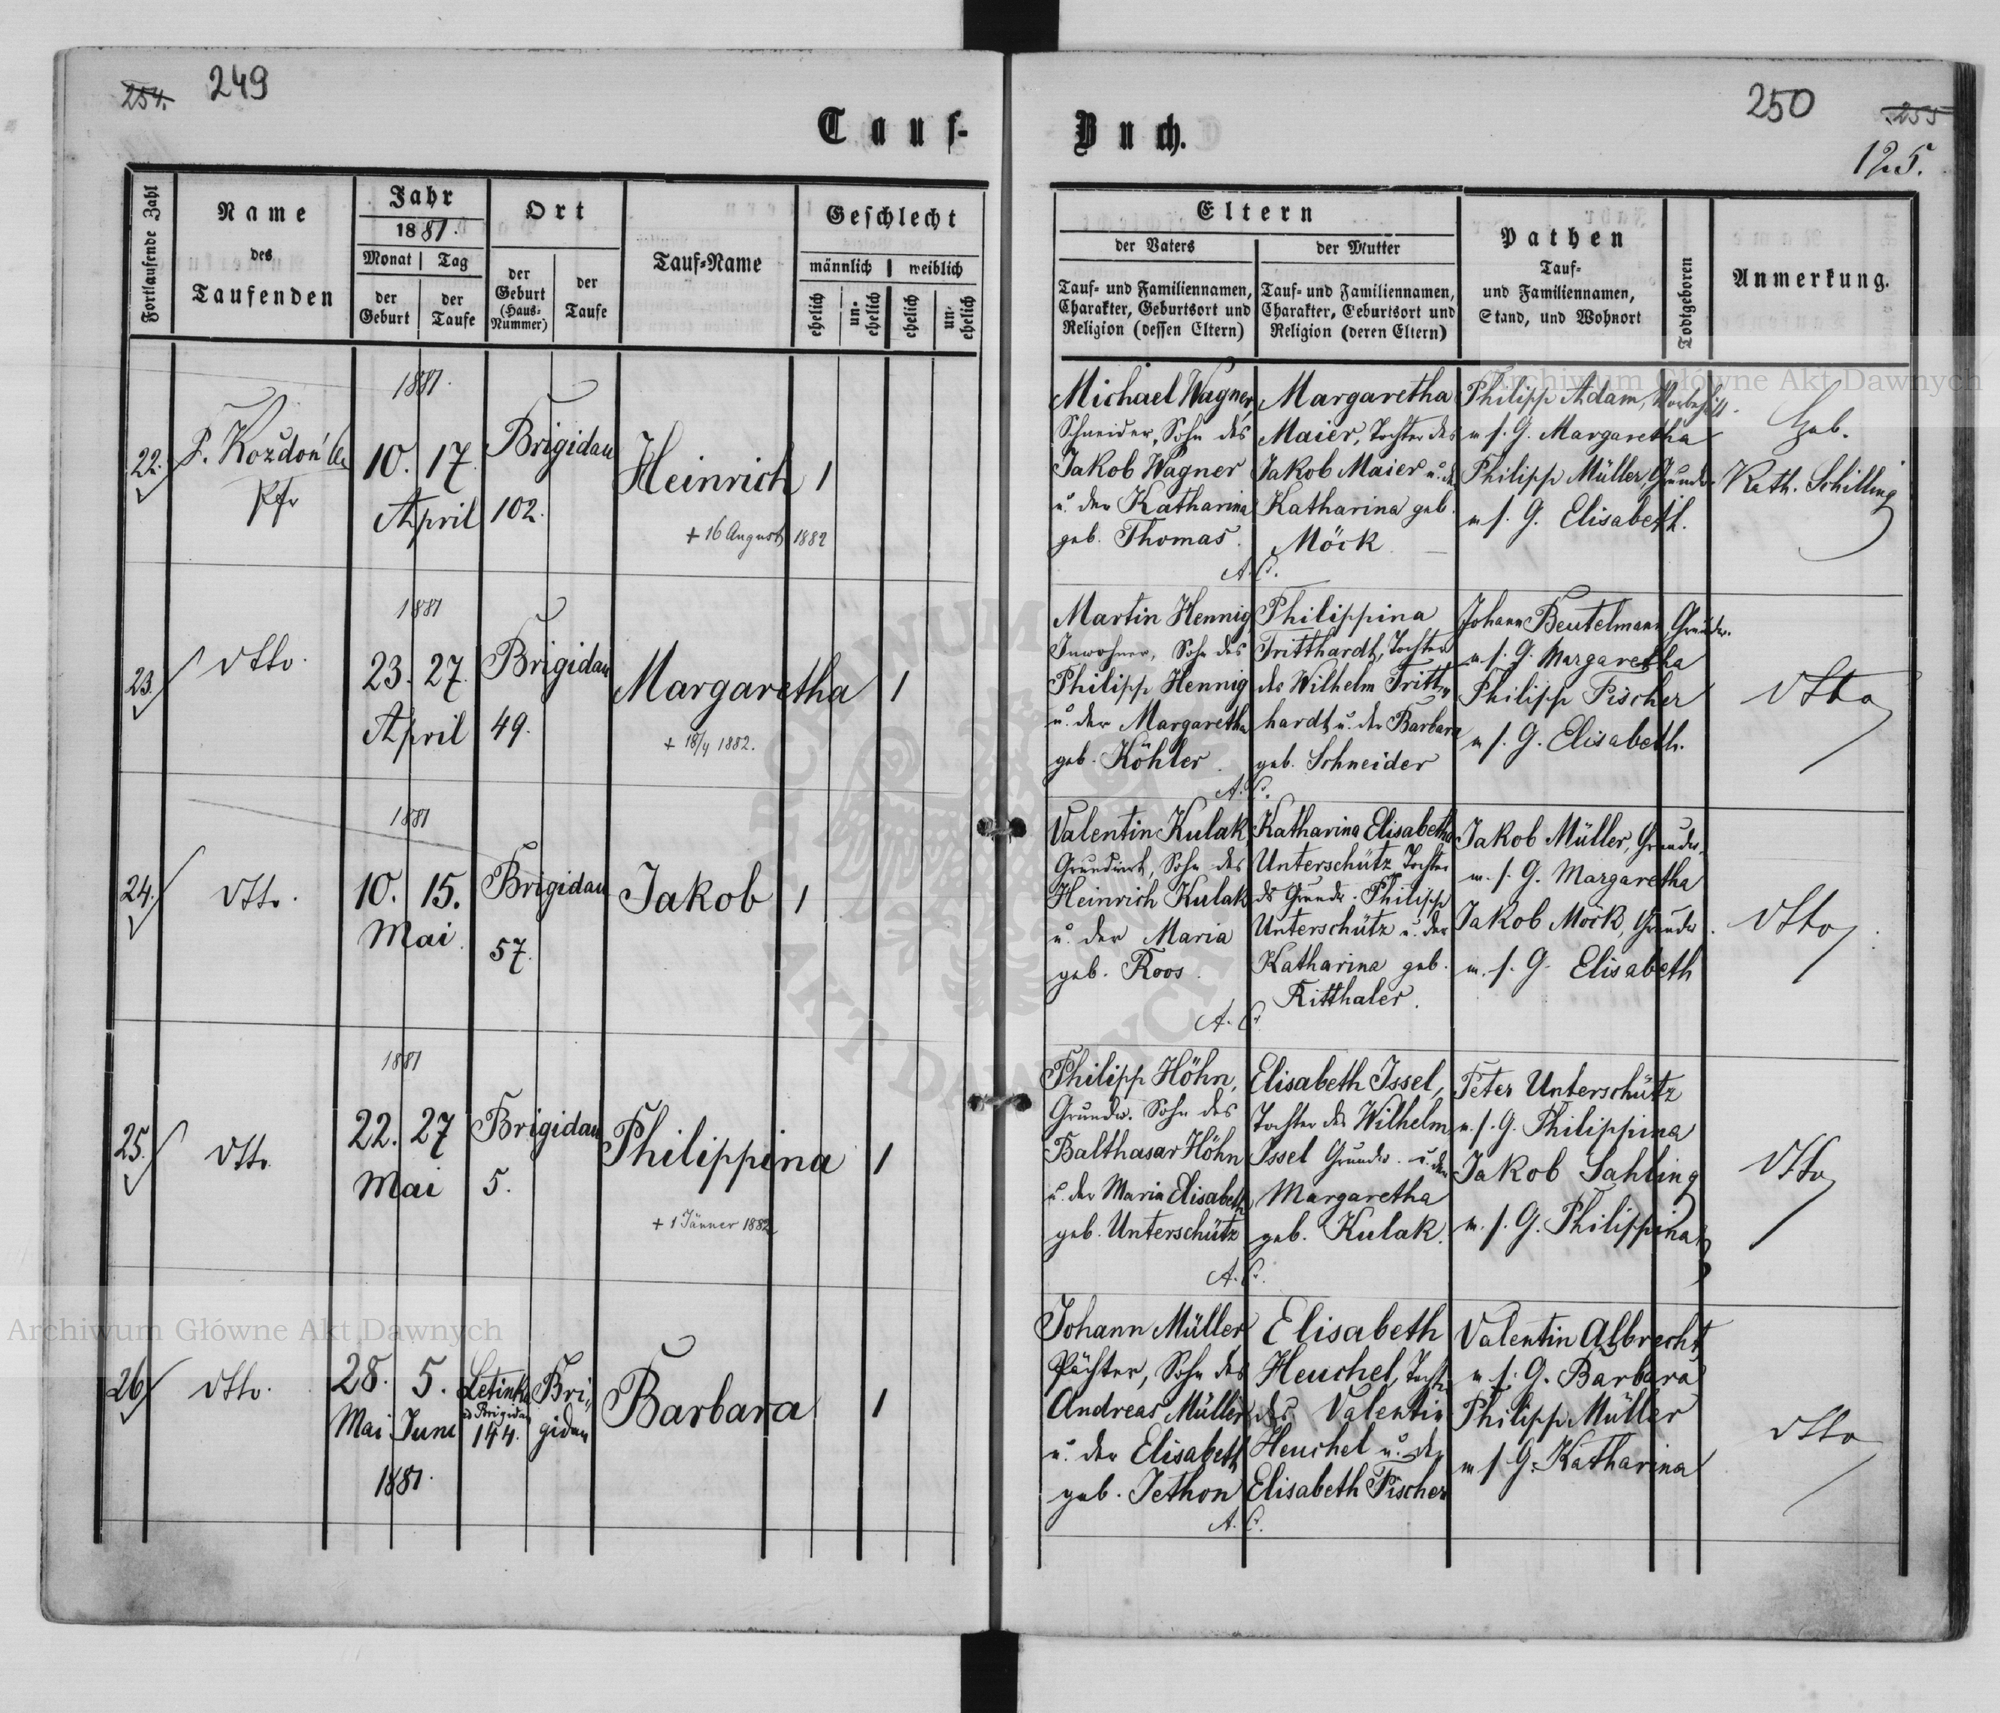 254.
249
250
255
125.
Tauf-
Buch.
Fortlaufende Zahl
Name
des
Taufenden
Jahr
1881.
Monat
Tag
der
Geburt
der
Taufe
Ort
der
Geburt
(Haus-
Nummer)
der
Taufe
Tauf-Name
Geschlecht
männlich
weiblich
ehelich
un-
ehelich
ehelich
un-
ehelich
Eltern
der Vaters
der Mutter
Tauf- und Familiennamen,
Charakter, Geburtsort und
Religion (dessen Eltern)
Tauf- und Familiennamen,
Charakter, Geburtsort und
Religion (deren Eltern)
Pathen
Tauf-
und Familiennamen,
Stand, und Wohnort
Todtgeboren
Anmerkung.
22.
F. Kozdoń
Pfr
1881.
10. 17.
April
Brigidau
102.
Heinrich
1
+ 16 August 1882
Michael Wagner,
Schneider, Sohn des
Jakob Wagner
u. der Katharina
geb. Thomas.
Margaretha
Maier, Tochter des
Jakob Maier u. d.
Katharina geb.
Möck.
A. C.
Philipp Adam,
m. s. G. Margaretha
Philipp Müller, Grundw.
m. s. G. Elisabeth.
Heb.
Kath. Schilling
23.
dtto.
1881
23. 27.
April
Brigidau
49.
Margaretha
1
+ 18/4 1882.
Martin Hennig
Inwohner, Sohn des
Philipp Hennig
u. der Margaretha
geb. Köhler.
Philippina
Tritthardt, Tochter
des Wilhelm Tritt-
hardt u. der Barbara
geb. Schneider
A. C.
Johann Beutelmann, Grundw.
m. s. G. Margaretha
Philipp Fischer
m. s. G. Elisabeth.
dtto
24.
dtto.
1881
10. 15.
Mai.
Brigidau
57.
Jakob
1
Valentin Kulak,
Grundwirt, Sohn des
Heinrich Kulak
u. der Maria
geb. Roos.
Katharina Elisabetha
Unterschütz, Tochter
ds Grundw. Philipp
Unterschütz u. der
Katharina geb.
Ritthaler.
A. C.
Jakob Müller, Grundw.
m. s. G. Margaretha
Jakob Möck, Grundw.
m. s. G. Elisabeth
dtto
25.
dtto.
1881
22. 27
Mai
Brigidau
5.
Philippina
1
+ 1 Jänner 1882
Philipp Höhn,
Grundw. Sohn des
Balthasar Höhn
u. der Maria Elisabeth
geb. Unterschütz
Elisabeth Issel,
Tochter ds Wilhelm
Issel Grundw. u. der
Margaretha
geb. Kulak.
A. C.
Peter Unterschütz
m. s. G. Philippina
Jakob Sahling
m. s. G. Philippina
dtto
26
dtto.
28. 5.
Mai. Juni
1881.
Letinka
ad Brigidau
144.
Bri-
gidau
Barbara
1
Johann Müller
Pächter, Sohn des
Andreas Müller
u. der Elisabeth
geb. Jethon
Elisabeth
Heuchel, Tochter
des Valentin
Heuchel u. der
Elisabeth Fischer
A. C.
Valentin Albrecht
m. s. G. Barbara
Philipp Müller
m. s. G. Katharina
dtto
Archiwum Główne Akt Dawnych
Archiwum Główne Akt Dawnych